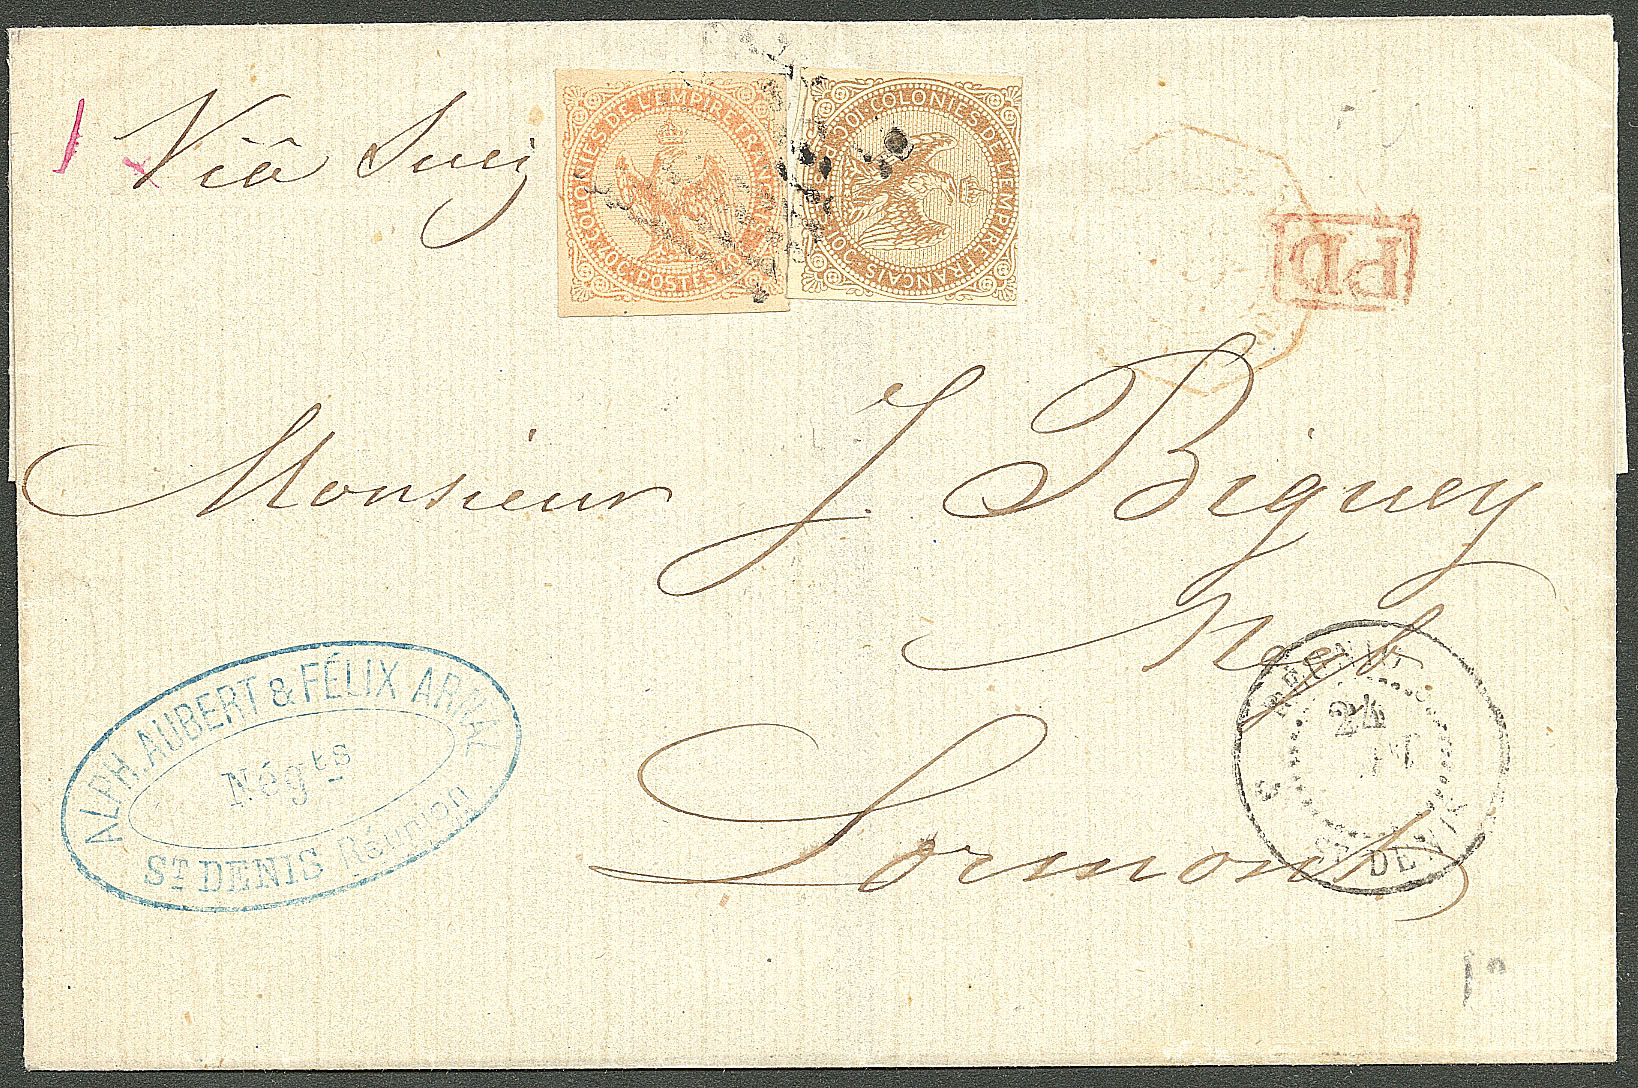 Viâ Suez
COLONIES DE L'EMPIRE FRANÇAIS
40 C. POSTES 40 C.
COLONIES DE L'EMPIRE FRANÇAIS
10 C. 10 C.
PD
Monsieur J. Biguey
Négt
Lormont
ALPH. AUBERT & FÉLIX ARNAL
Négts
ST DENIS Réunion
RÉUNION
24
ST DENIS